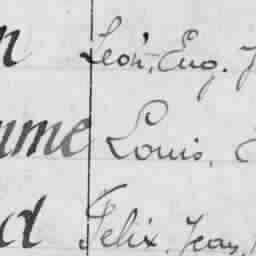 n Léon, Eug. J
ume Louis.
d Félix. Jean,